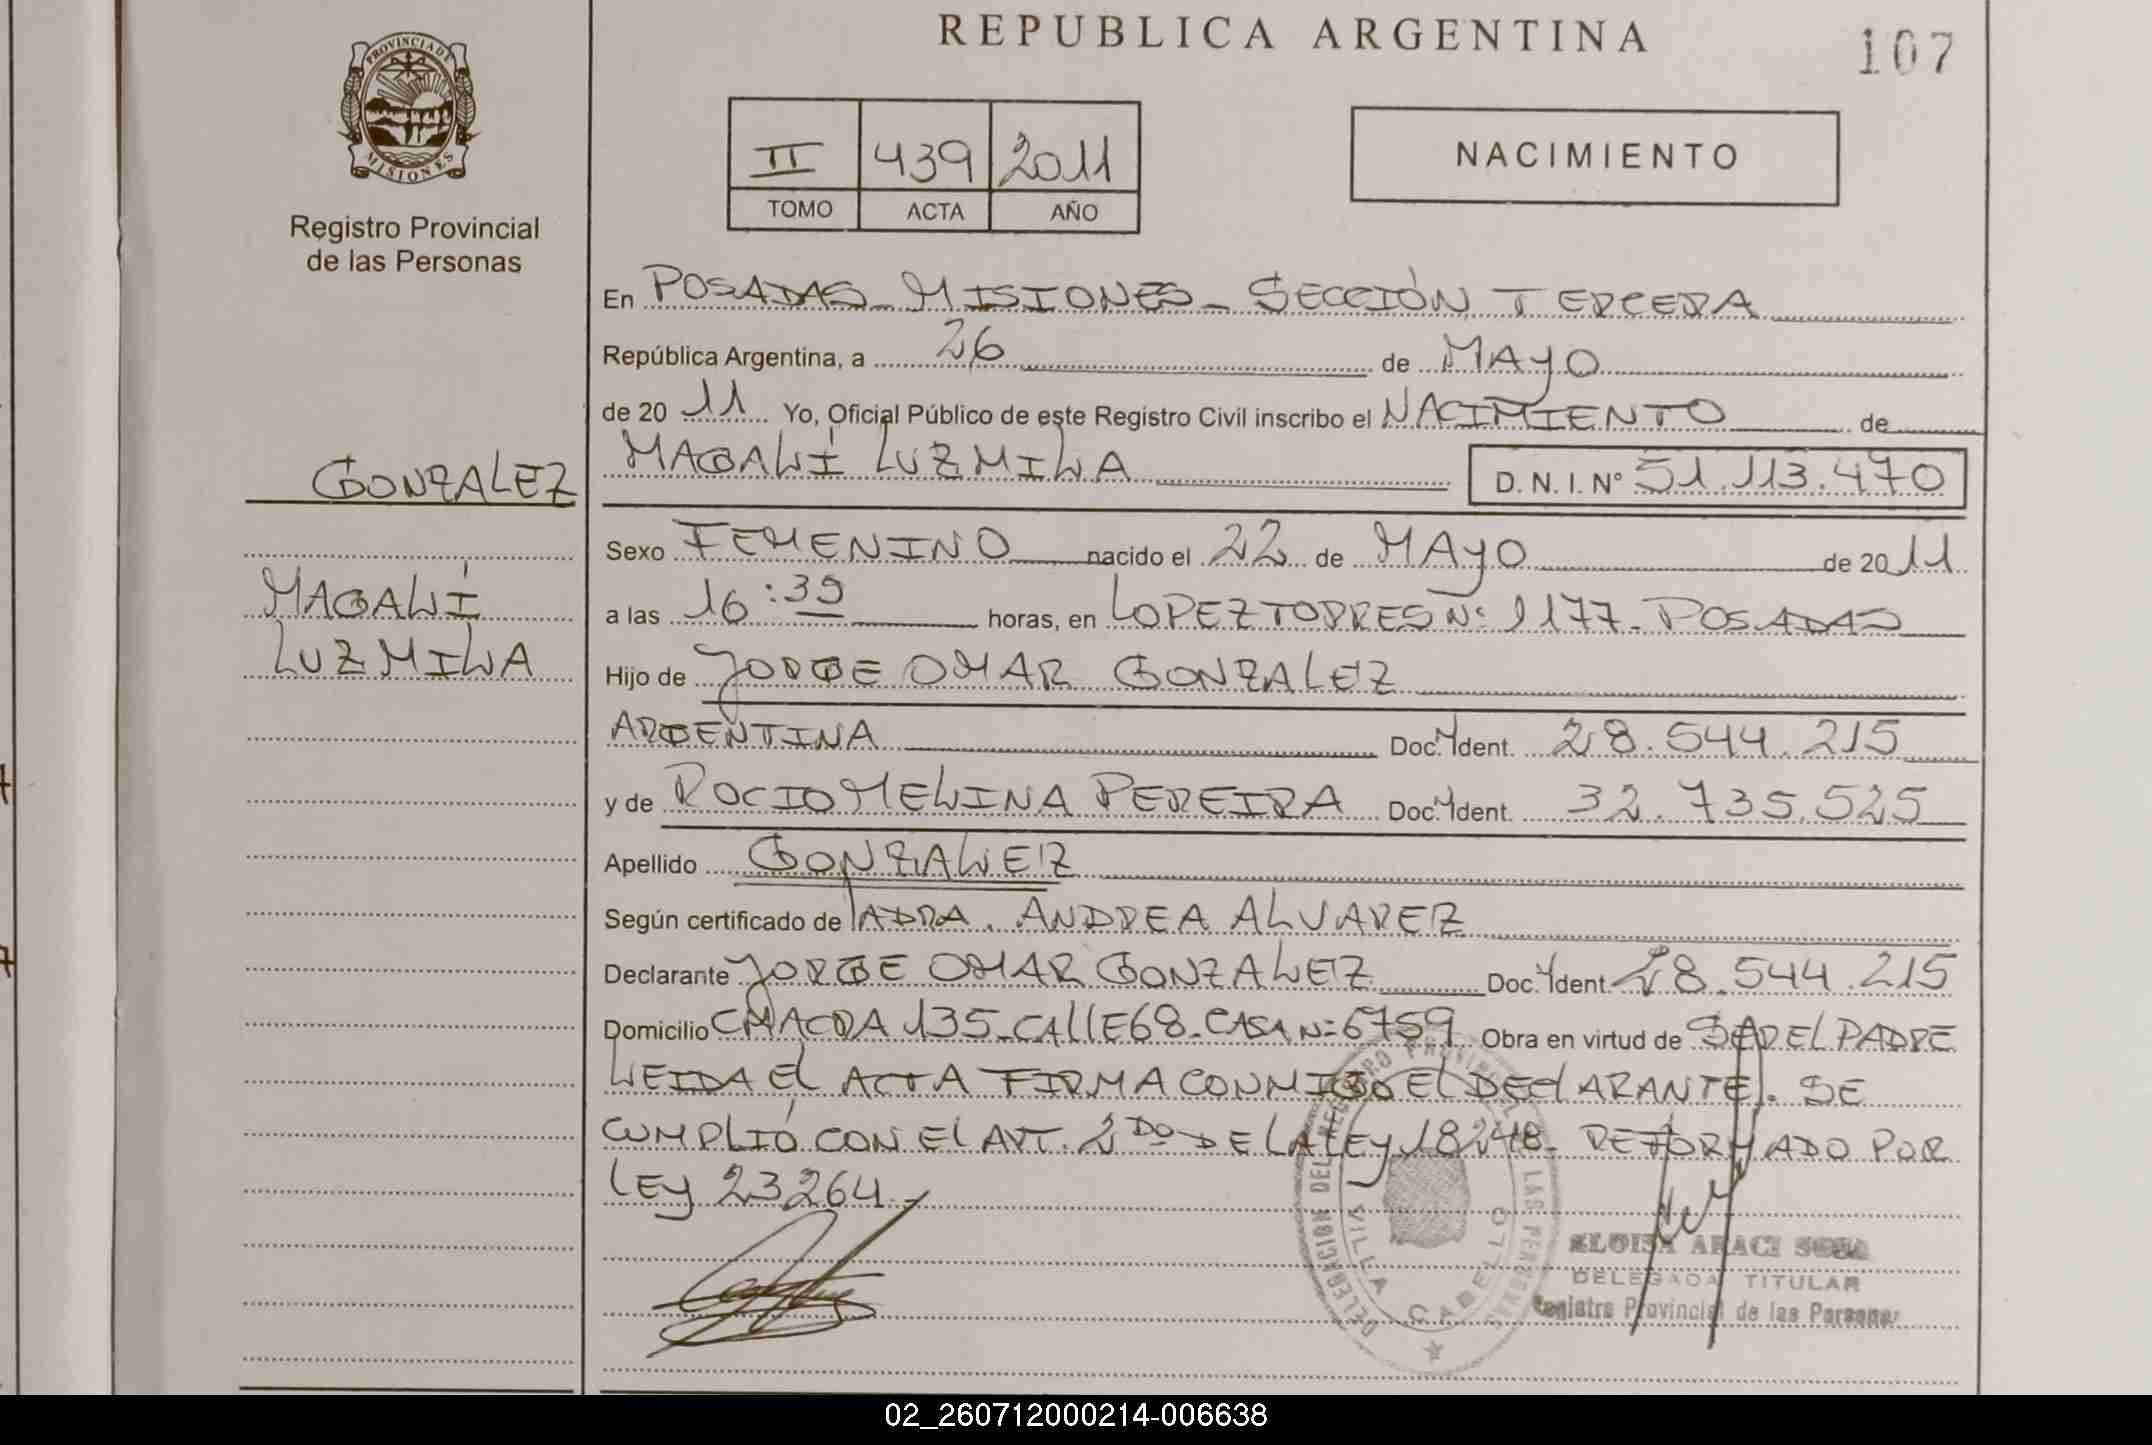 REPUBLICA ARGENTINA
107
PROVINCIA DE
MISIONES
Registro Provincial
de las Personas
II 439 2011
TOMO ACTA AÑO
NACIMIENTO
En POSADAS - MISIONES - SECCIÓN TERCERA
República Argentina, a 26 de MAYO
de 20 11 Yo, Oficial Público de este Registro Civil inscribo el NACIMIENTO de
MAGALÍ LUZ MILA D. N. I. N° 51.113.470
GONZALEZ
MAGALÍ
LUZ MILA
Sexo FEMENINO nacido el 22 de MAYO de 20 11
a las 16:35 horas, en LOPEZ TORRES Nº 1177 - POSADAS
Hijo de JORGE OMAR GONZALEZ
ARGENTINA Doc. Ident. 28.544.215
y de ROCIO MELINA PEREIRA Doc. Ident. 32.735.525
Apellido GONZALEZ
Según certificado de ANDREA ALVAREZ
Declarante JORGE OMAR GONZALEZ Doc. Ident. 28.544.215
Domicilio CHACRA 135 - CALLE 68 - CASA Nº 6759 Obra en virtud de SER EL PADRE
LEIDA EL ACTA FIRMA CONMIGO EL DECLARANTE. SE
CUMPLIÓ CON EL ART. 2DO DE LA LEY 18248 - REFORMADO POR
LEY 23264.-
DELEGACION DEL REGISTRO PROVINCIAL DE LAS PERSONAS
VILLA CABELLO
ELOISA ARACI SOSA
DELEGADA TITULAR
Registro Provincial de las Personas
02_260712000214-006638